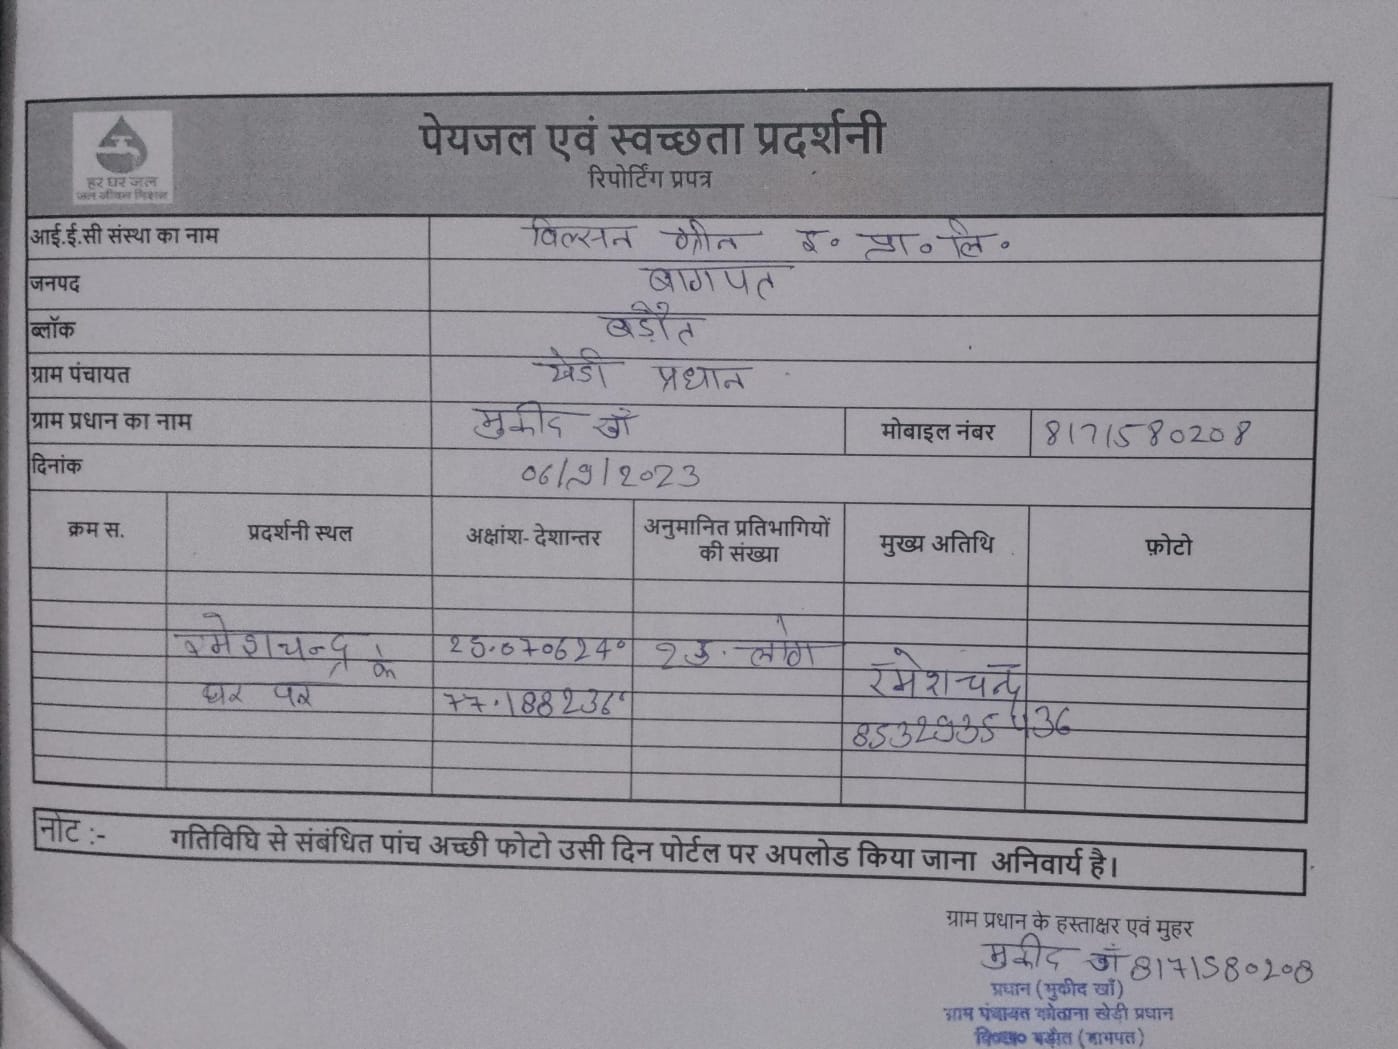 पेयजल एवं स्वच्छता प्रदर्शनी
रिपोर्टिंग प्रपत्र
हर घर जल
जल जीवन मिशन
आई.ई.सी संस्था का नाम विल्सन ग्रीन इ० प्रा० लि०
जनपद बागपत
ब्लॉक बड़ौत
ग्राम पंचायत खेडी प्रधान
ग्राम प्रधान का नाम मुकीद खाँ मोबाइल नंबर 8171580208
दिनांक 06/9/2023
क्रम स. प्रदर्शनी स्थल अक्षांश- देशान्तर अनुमानित प्रतिभागियों की संख्या मुख्य अतिथि फ़ोटो
रमेशचन्द्र के 25.070624° लोग
घर पर 77.188236° रमेशचन्द्र
8532935436
नोट :- गतिविधि से संबंधित पांच अच्छी फोटो उसी दिन पोर्टल पर अपलोड किया जाना अनिवार्य है।
ग्राम प्रधान के हस्ताक्षर एवं मुहर
मुकीद खाँ 8171580208
प्रधान (मुकीद खाँ)
ग्राम पंचायत कोताना खेडी प्रधान
वि०ख० बड़ौत (बागपत)